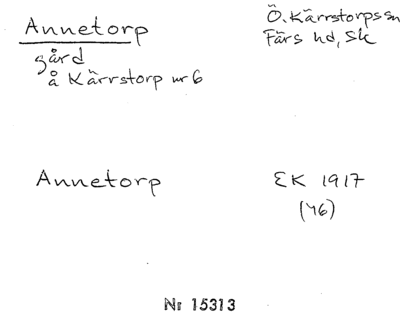 Annetorp Ö. Kärrstorps sn
gård Färs hd, Sk
å Kärrstorp nr 6
Annetorp EK 1917
(46)
Nr 15313